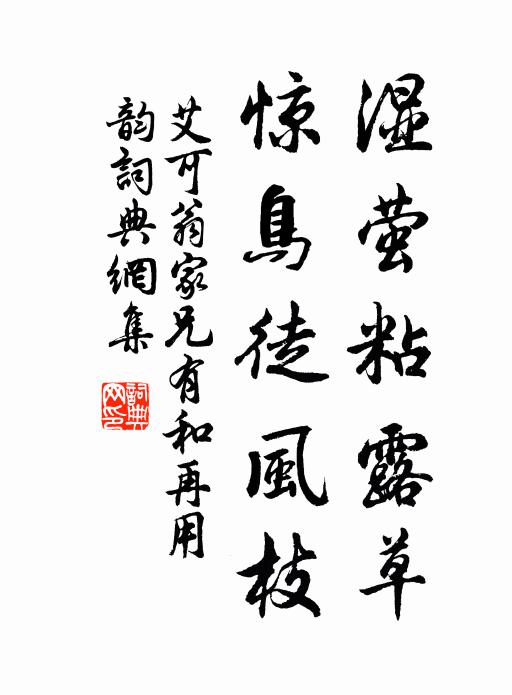 湿萤粘露草
惊鳥徒風枝
艾可翁家兄有和再用
韵詞典網集
詞典
网印